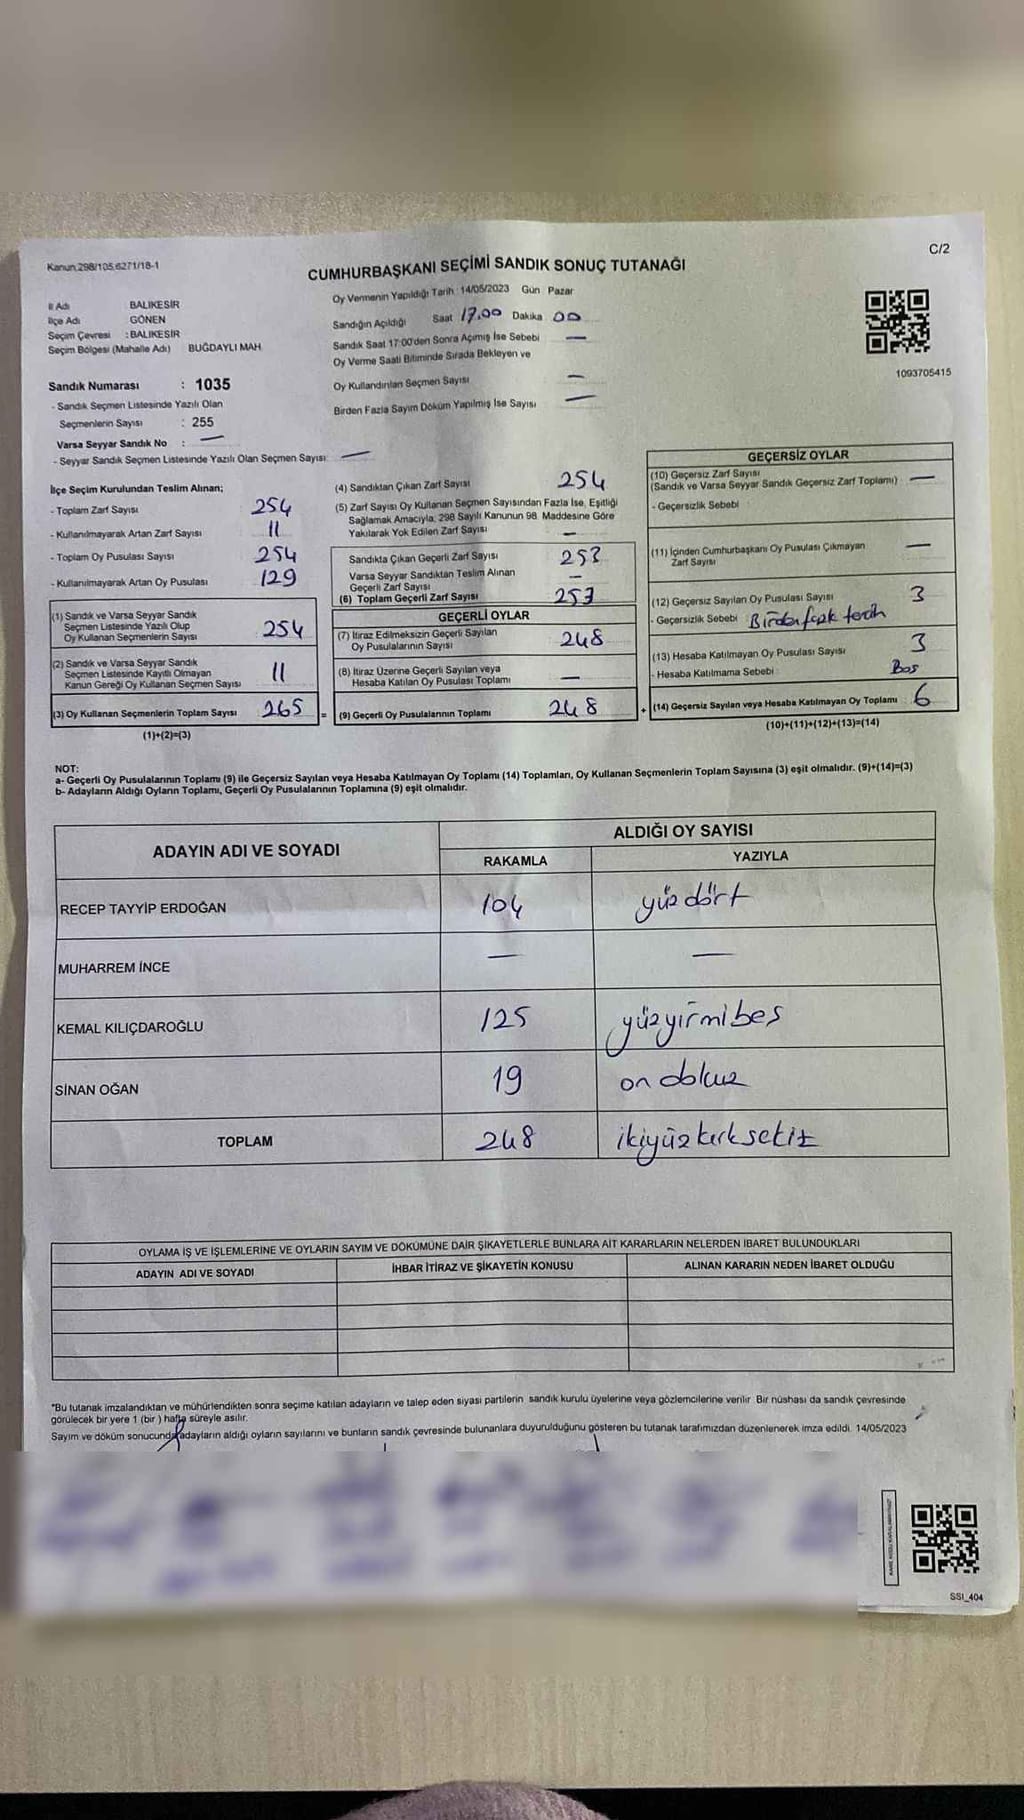 C/2
Kanun.298/105,6271/18-1
CUMHURBAŞKANI SEÇİMİ SANDIK SONUÇ TUTANAĞI
İl Adı BALIKESİR
İlçe Adı GÖNEN
Seçim Çevresi : BALIKESİR
Seçim Bölgesi (Mahalle Adı) BUĞDAYLI MAH.
Oy Vermenin Yapıldığı Tarih : 14/05/2023 Gün Pazar
Sandığın Açıldığı Saat 17.00 Dakika 00
Sandık Saat 17:00'den Sonra Açımış İse Sebebi —
Oy Verme Saati Bitiminde Sırada Bekleyen ve
Oy Kullandırılan Seçmen Sayısı —
Birden Fazla Sayım Döküm Yapılmış İse Sayısı —
1093705415
Sandık Numarası : 1035
- Sandık Seçmen Listesinde Yazılı Olan
Seçmenlerin Sayısı : 255
Varsa Seyyar Sandık No : —
- Seyyar Sandık Seçmen Listesinde Yazılı Olan Seçmen Sayısı: —
İlçe Seçim Kurulundan Teslim Alınan;
- Toplam Zarf Sayısı 254
- Kullanılmayarak Artan Zarf Sayısı 11
- Toplam Oy Pusulası Sayısı 254
- Kullanılmayarak Artan Oy Pusulası 129
(1) Sandık ve Varsa Seyyar Sandık
Seçmen Listesinde Yazılı Olup
Oy Kullanan Seçmenlerin Sayısı 254
(2) Sandık ve Varsa Seyyar Sandık
Seçmen Listesinde Kayıtlı Olmayan
Kanun Gereği Oy Kullanan Seçmen Sayısı 11
(3) Oy Kullanan Seçmenlerin Toplam Sayısı 265 =
(1)+(2)=(3)
(4) Sandıktan Çıkan Zarf Sayısı 254
(5) Zarf Sayısı Oy Kullanan Seçmen Sayısından Fazla İse, Eşitliği
Sağlamak Amacıyla, 298 Sayılı Kanunun 98. Maddesine Göre
Yakılarak Yok Edilen Zarf Sayısı —
Sandıkta Çıkan Geçerli Zarf Sayısı 253
Varsa Seyyar Sandıktan Teslim Alınan
Geçerli Zarf Sayısı —
(6) Toplam Geçerli Zarf Sayısı 253
GEÇERLİ OYLAR
(7) İtiraz Edilmeksizin Geçerli Sayılan
Oy Pusulalarının Sayısı 248
(8) İtiraz Üzerine Geçerli Sayılan veya
Hesaba Katılan Oy Pusulası Toplamı —
(9) Geçerli Oy Pusulalarının Toplamı 248 +
GEÇERSİZ OYLAR
(10) Geçersiz Zarf Sayısı
(Sandık ve Varsa Seyyar Sandık Geçersiz Zarf Toplamı) —
- Geçersizlik Sebebi
(11) İçinden Cumhurbaşkanı Oy Pusulası Çıkmayan
Zarf Sayısı —
(12) Geçersiz Sayılan Oy Pusulası Sayısı 3
- Geçersizlik Sebebi Birden fazla tercih
(13) Hesaba Katılmayan Oy Pusulası Sayısı 3
- Hesaba Katılmama Sebebi Boş
(14) Geçersiz Sayılan veya Hesaba Katılmayan Oy Toplamı 6
(10)+(11)+(12)+(13)=(14)
NOT:
a- Geçerli Oy Pusulalarının Toplamı (9) ile Geçersiz Sayılan veya Hesaba Katılmayan Oy Toplamı (14) Toplamları, Oy Kullanan Seçmenlerin Toplam Sayısına (3) eşit olmalıdır. (9)+(14)=(3)
b- Adayların Aldığı Oyların Toplamı, Geçerli Oy Pusulalarının Toplamına (9) eşit olmalıdır.
ADAYIN ADI VE SOYADI ALDIĞI OY SAYISI
RAKAMLA YAZIYLA
RECEP TAYYİP ERDOĞAN 104 yüz dört
MUHARREM İNCE — —
KEMAL KILIÇDAROĞLU 125 yüzyirmibeş
SİNAN OĞAN 19 on dokuz
TOPLAM 248 ikiyüzkırksekiz
OYLAMA İŞ VE İŞLEMLERİNE VE OYLARIN SAYIM VE DÖKÜMÜNE DAİR ŞİKAYETLERLE BUNLARA AİT KARARLARIN NELERDEN İBARET BULUNDUKLARI
ADAYIN ADI VE SOYADI İHBAR İTİRAZ VE ŞİKAYETİN KONUSU ALINAN KARARIN NEDEN İBARET OLDUĞU
*Bu tutanak imzalandıktan ve mühürlendikten sonra seçime katılan adayların ve talep eden siyasi partilerin sandık kurulu üyelerine veya gözlemcilerine verilir. Bir nüshası da sandık çevresinde
görülecek bir yere 1 (bir ) hafta süreyle asılır.
Sayım ve döküm sonucunda adayların aldığı oyların sayılarını ve bunların sandık çevresinde bulunanlara duyurulduğunu gösteren bu tutanak tarafımızdan düzenlenerek imza edildi. 14/05/2023
SSI_404